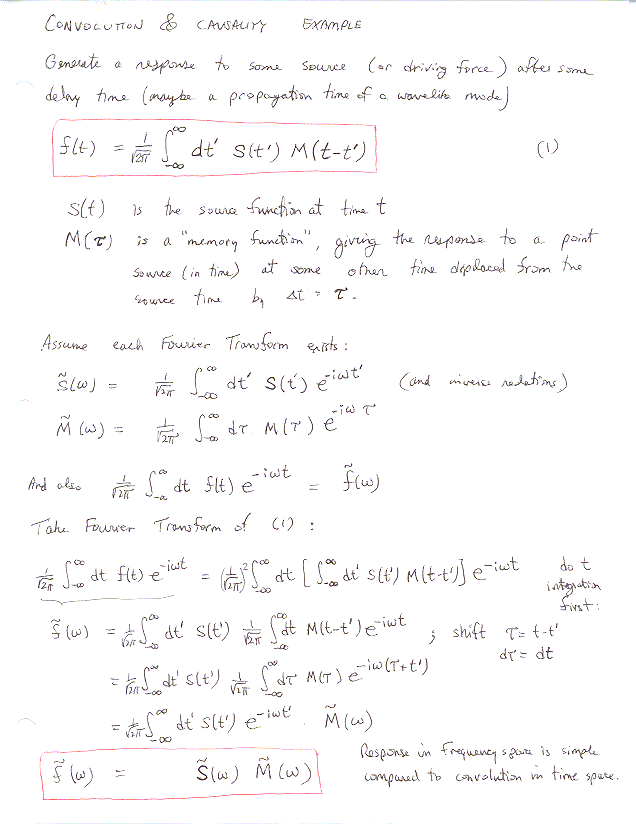 CONVOLUTION & CAUSALITY EXAMPLE
Generate a response to some source (or driving force) after some
delay time (maybe a propagation time of a wavelike mode)
f(t) = 1/√2π ∫_{-∞}^{∞} dt' S(t') M(t-t') (1)
S(t) is the source function at time t
M(τ) is a "memory function", giving the response to a point
source (in time) at some other time displaced from the
source time by Δt = τ.
Assume each Fourier Transform exists:
S̃(ω) = 1/√2π ∫_{-∞}^{∞} dt' S(t') e^{-iωt'} (and inverse relations)
M̃(ω) = 1/√2π ∫_{-∞}^{∞} dτ M(τ) e^{-iωτ}
And also 1/√2π ∫_{-∞}^{∞} dt f(t) e^{-iωt} = f̃(ω)
Take Fourier Transform of (1):
1/√2π ∫_{-∞}^{∞} dt f(t) e^{-iωt} = (1/√2π)² ∫_{-∞}^{∞} dt [∫_{-∞}^{∞} dt' S(t') M(t-t')] e^{-iωt} do t
integration
first:
f̃(ω) = 1/√2π ∫_{-∞}^{∞} dt' S(t') 1/√2π ∫_{-∞}^{∞} dt M(t-t') e^{-iωt} ; shift τ = t-t'
dτ = dt
= 1/√2π ∫_{-∞}^{∞} dt' S(t') 1/√2π ∫_{-∞}^{∞} dτ M(τ) e^{-iω(τ+t')}
= 1/√2π ∫_{-∞}^{∞} dt' S(t') e^{-iωt'} · M̃(ω)
f̃(ω) = S̃(ω) M̃(ω)
Response in frequency space is simple
compared to convolution in time space.